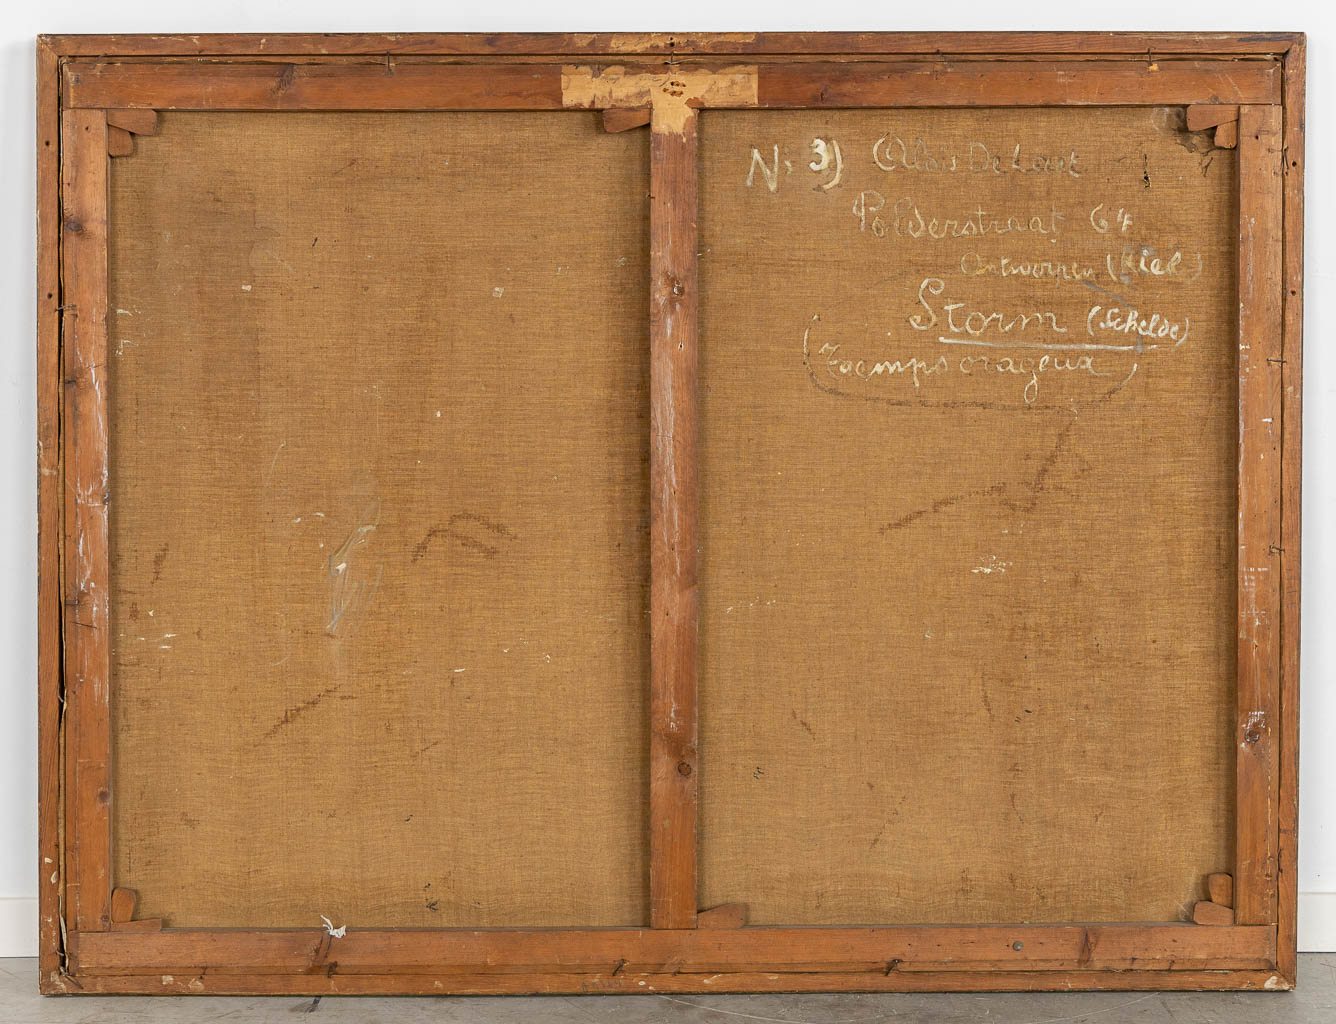 N: 3) Alois De Laet
Polderstraat 64
Antwerpen (Kiel)
Storm (Schelde)
temps orageux